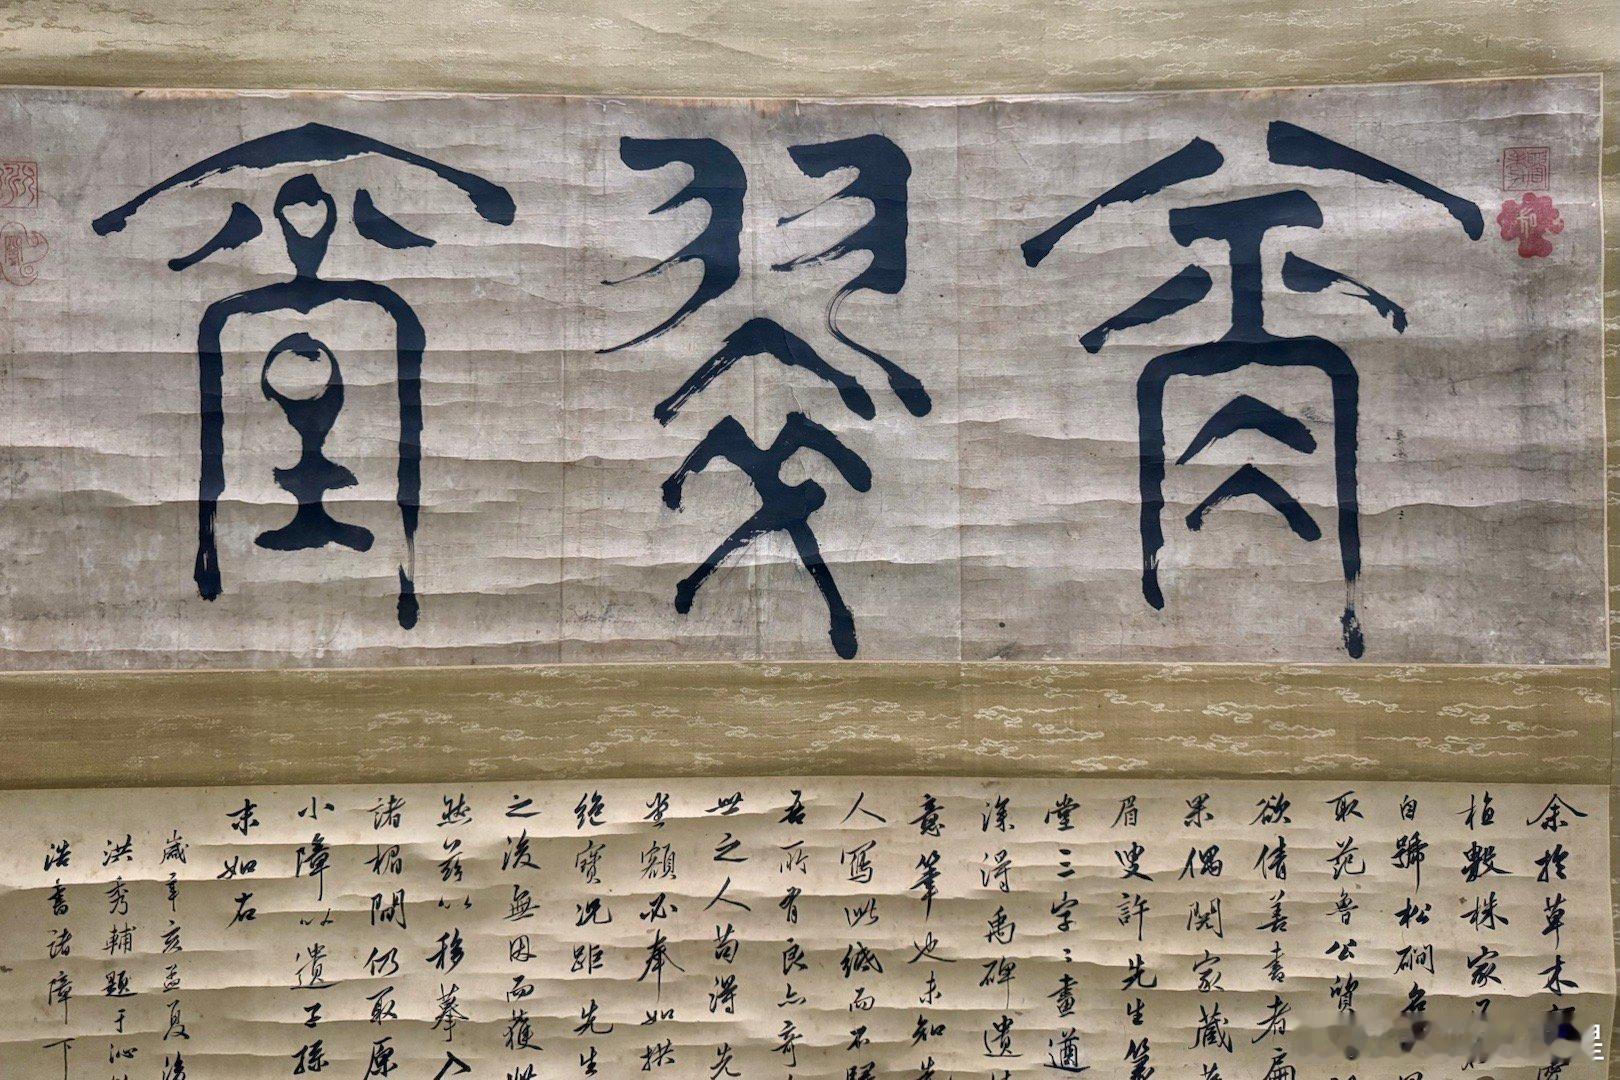 翠堂
余於草木
植數株家
自號松磵名
取范魯公質
欲倩善書者扁
果偶閱家藏
眉叟許先生篆
堂三字〻畫遒
深得禹碑遺
意筆也未知先
人寫此紙而不
吾所有良亦奇
世之人苟得先
坐額必奉如拱
絶寶況距先生
之後無因而獲
然茲以移摹入
諸楣間仍取原
小障以遺子孫
末如右
歲辛亥孟夏
洪秀輔題于沁
浩書諸障下